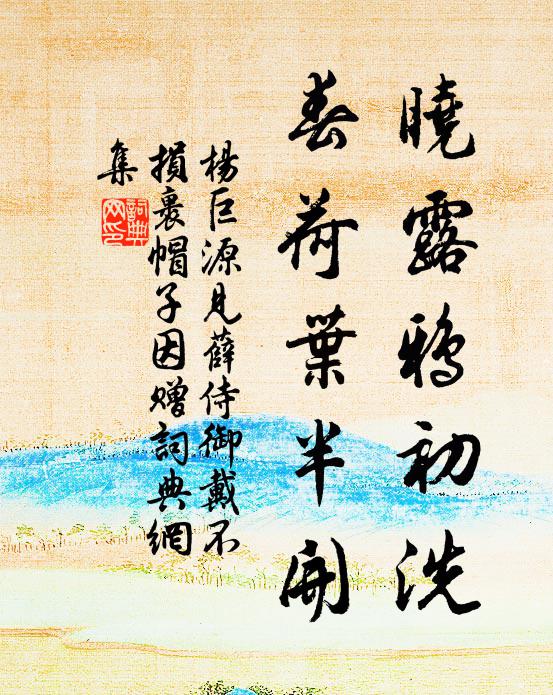 曉露鴉初洗
春荷葉半開
楊巨源見薛侍御戴不
損裹帽子因贈詞典網
集
詞典網印